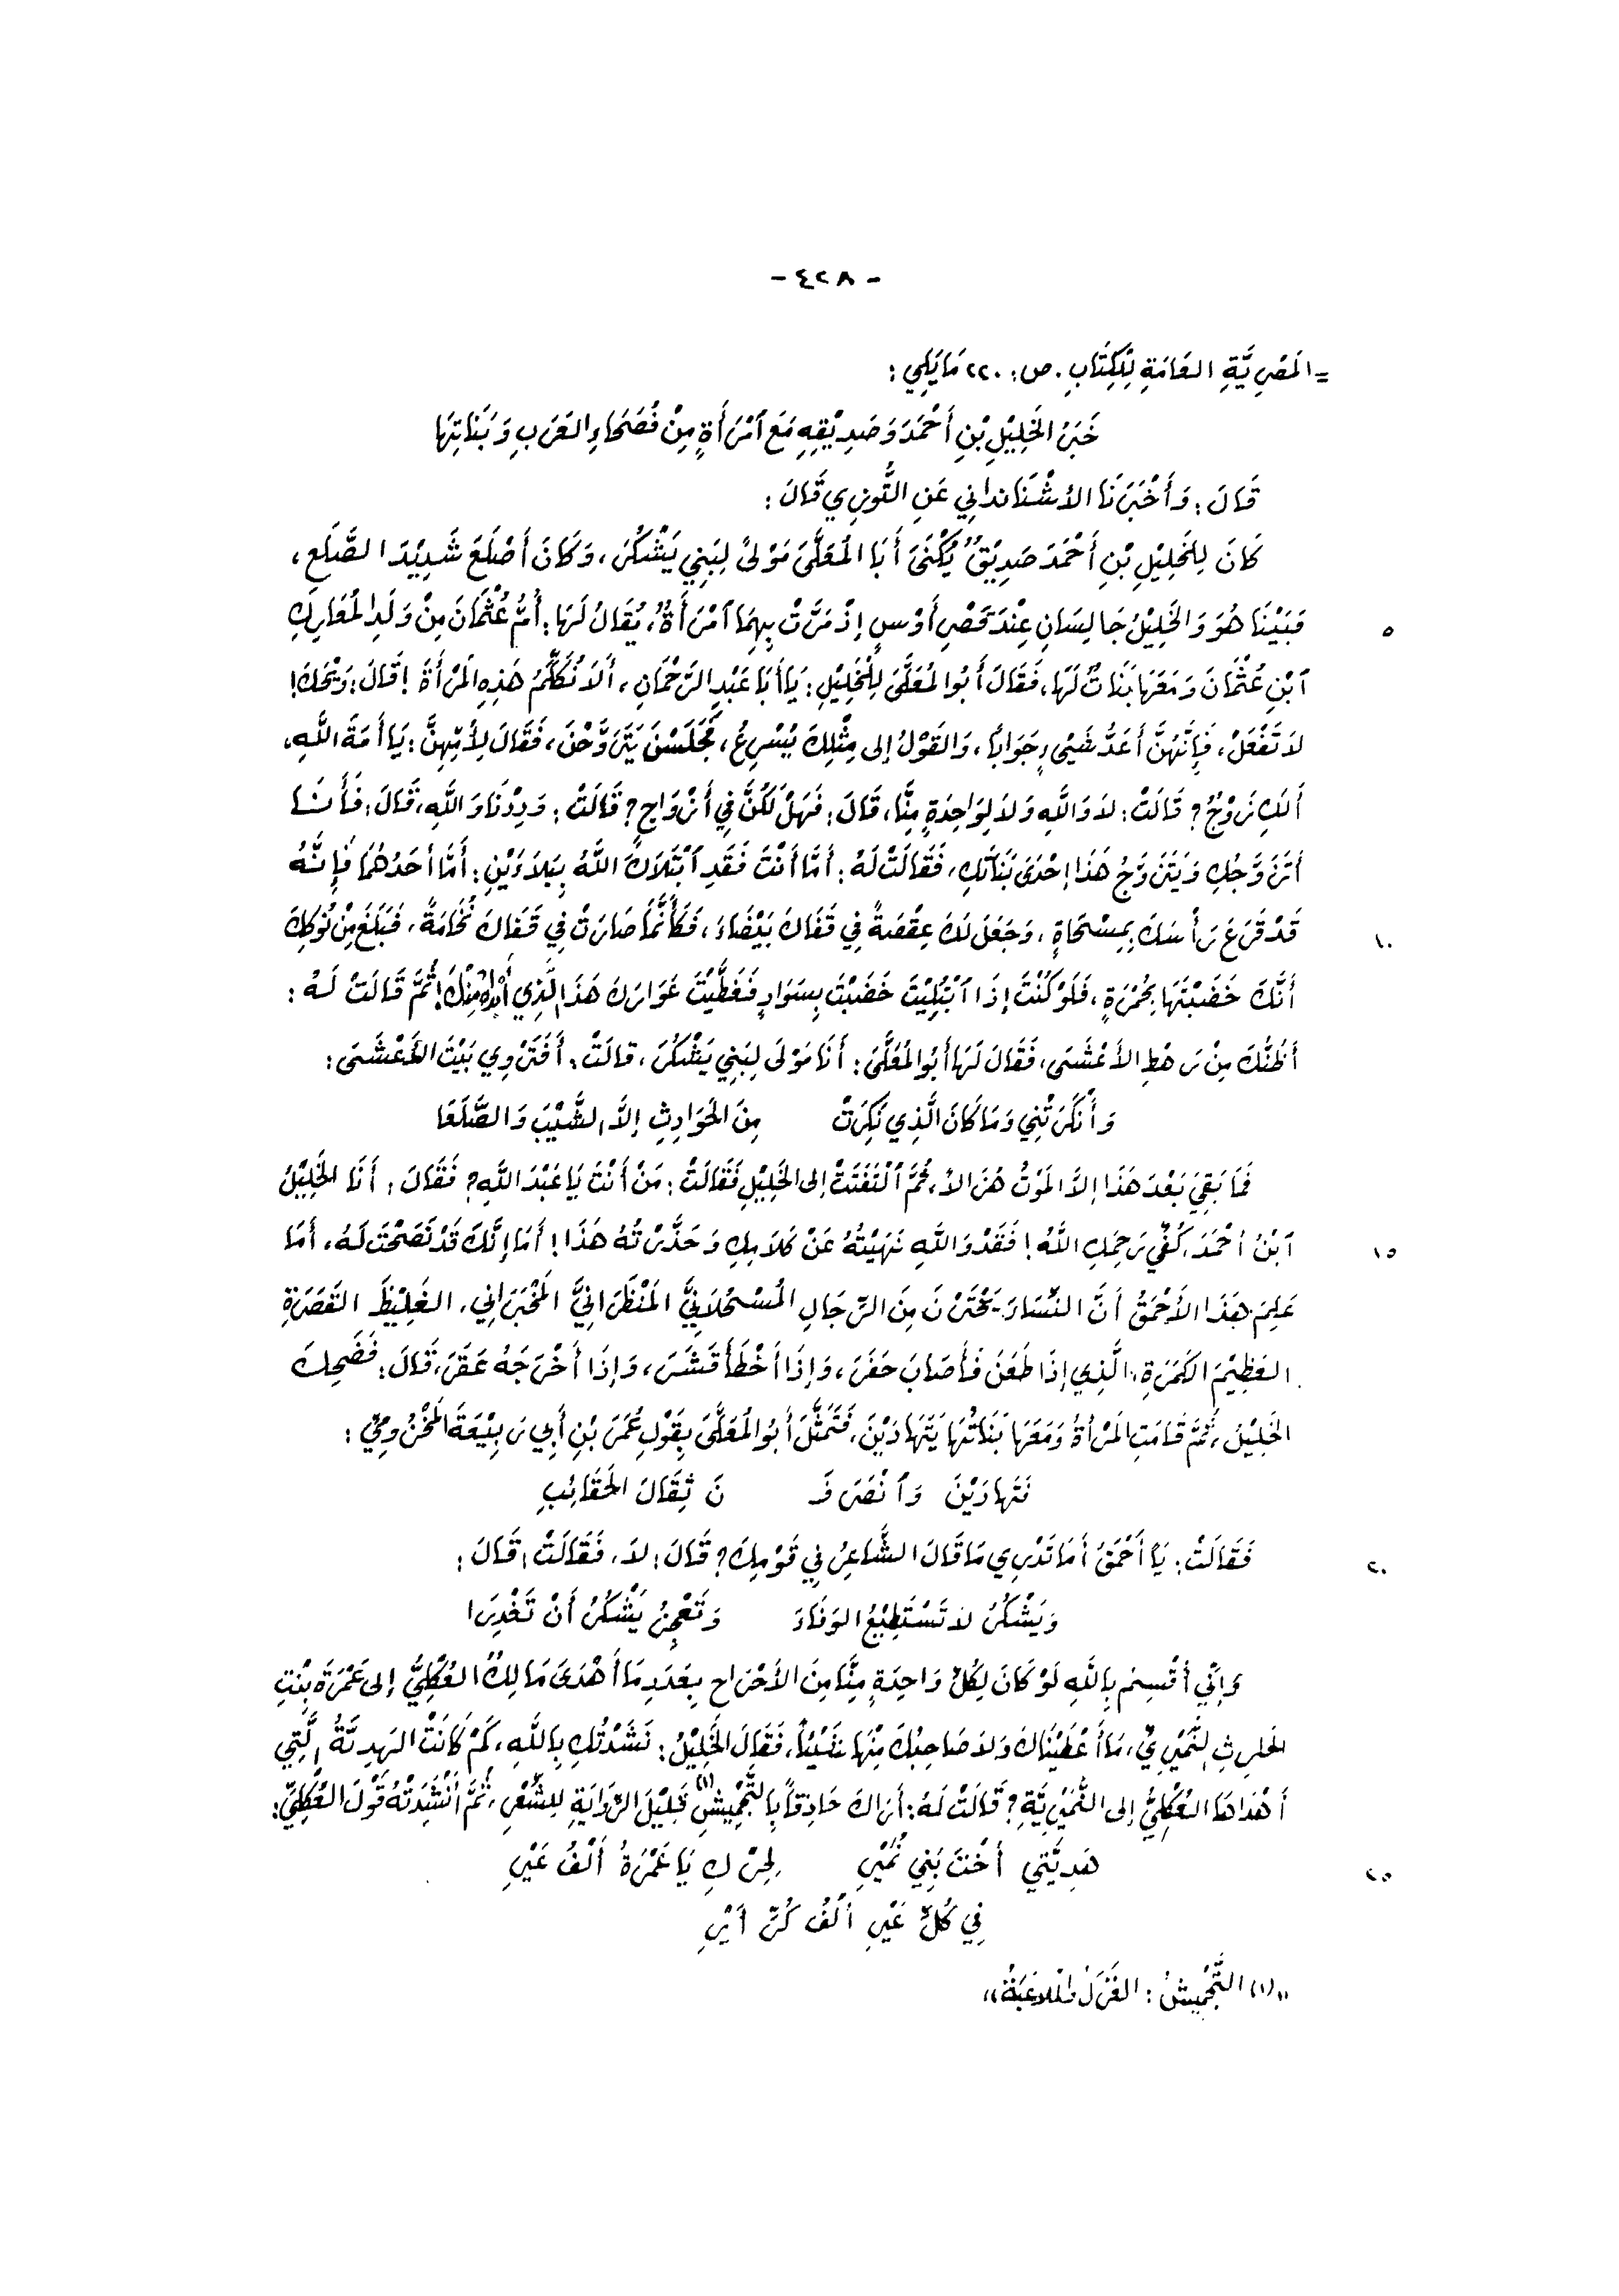 - ٤٢٨ -
= المَصْرِيَّةِ العَامَةِ لِلْكِتَابِ . ص: ٢٢٠ مَا يَلِي :
خَبَرُ الخَلِيْلِ بْنِ أَحْمَدَ وَصَدِيْقِهِ مَعَ ٱمْرَأَةٍ مِنْ فُصَحَاءِ العَرَبِ وَبَنَاتِهَا
قَالَ : وَأَخْبَرَنَا الأشْنَانداني عَنِ التُّوزِي قَالَ :
كَانَ لِلخَلِيْلِ بْنِ أَحْمَدَ صَدِيْقٌ يُكْنَىَ أَبَا المُعَلَّىَ مَوْلىً لِبَنِي يَشْكُرَ ، وَكَانَ أَصْلَعَ شَدِيْدَ الصَّلَعِ ،
٥ فَبَيْنَا هُوَ وَالخَلِيْلُ جَالِسَانِ عِنْدَ قَصْرِ أَوْسٍ إذْ مَرَّتْ بِهِمَا ٱمْرَأَةٌ ، يُقَالُ لَهَا : أُمُّ عُثْمَانَ مِنْ وَلَدِ المُعَارِكِ
ٱبْنِ عُثْمَانَ وَمَعَهَا بَنَاتٌ لَهَا ، فَقَالَ أَبُو المُعَلَّىَ لِلْخَلِيْلِ : يَا أَبَا عَبْدِ الرَّحْمَانِ ، أَلاَ نُكَلِّمُ هَذِهِ المَرْأَةَ ! قَالَ : وَيْحَكَ !
لاَ تَفْعَلْ ، فَإِنَّهُنَّ أَعَدُّ شَيْىءٍ جَوَابَاً ، وَالقَوْلُ إلى مِثْلِكَ يُسْرِعُ ، فَجَلَسْنَ يَتَرَوَّحْنَ ، فَقَالَ لِأُمِّهِنَّ : يَا أَمَةَ اللَّهِ ،
أَلَكِ زَوْجٌ ؟ قَالَتْ : لاَ وَاللَّهِ وَلاَ لِوَاحِدَةٍ مِنَّا ، قَالَ : فَهَلْ لَكُنَّ فِي أَزْوَاجٍ ؟ قَالَتْ : وَدِدْنَا وَاللَّهِ ، قَالَ : فَأَنَا
أَتَزَوَّجُكِ وَيَتَزَوَّجُ هَذَا إحْدَىَ بَنَاتِكِ ، فَقَالَتْ لَهُ : أَمَّا أَنْتَ فَقَدِ ٱبْتَلاَكَ اللَّهُ بِبَلاَءَيْنِ : أَمَّا أَحَدُهُمَا فَإِنَّهُ
١٠ قَدْ قَرَعَ رَأْسَكَ بِمِسْحَاةٍ ، وَجَعَلَ لَكَ عِقْصَةً فِي قَفَاكَ بَيْضَاءَ ، فَكَأَنَّمَا صَارَتْ فِي قَفَاكَ نُخَامَةً ، فَبَلَغَ مِنْ نُوكِكَ
أَنَّكَ خَضَبْتَهَا بِحُمْرَةٍ ، فَلَوْ كُنْتَ إذَا ٱبْتُلِيْتَ خَضَبْتَ بِسَوَادٍ فَغَطَّيْتَ عَوَارَكَ هَذَا الَّذِي أَبْدَاهُ مِنْكَ ! ثُمَّ قَالَتْ لَهُ :
أَظُنُّكَ مِنْ رَهْطِ الأَعْشَى ، فَقَالَ لَهَا أَبُو المُعَلَّىَ : أَنَا مَوْلَىَ لِبَنِي يَشْكُرَ ، قَالَتْ : أَفَتَرْوِي بَيْتَ الأَعْشَىَ :
وَأَنْكَرَتْنِي وَمَا كَانَ الَّذِي نَكِرَتْ مِنَ الحَوَادِثِ إلاَّ الشَّيْبَ وَالصَّلَعَا
فَمَا بَقِيَ بَعْدَ هَذَا إلاَّ المَوْتُ هُزَالاً ، ثُمَّ ٱلْتَفَتَتْ إلى الخَلِيْلِ فَقَالَتْ : مَنْ أَنْتَ يَا عَبْدَ اللَّهِ ؟ فَقَالَ : أَنَا الخَلِيْلُ
١٥ ٱبْنُ أَحْمَدَ ، كُفِّي رَحِمَكِ اللَّهُ ! فَقَدْ وَاللَّهِ نَهَيْتُهُ عَنْ كَلاَمِكِ وَحَذَّرْتُهُ هَذَا ! أَمَا إنَّكَ قَدْ نَصَحْتَ لَهُ ، أَمَا
عَلِمَ هَذَا الأَحْمَقُ أَنَّ النِّسَاءَ يَخْتَرْنَ مِنَ الرِّجَالِ المُسْحُلاَنِيَّ المَنْظَرَانِيَّ المَخْبَرَانِي ، الغَلِيْظَ القَصَرَةِ
العَظِيْمَ الكَمَرَةِ ، الَّذِي إذَا طَعَنَ فَأَصَابَ حَفَرَ ، وَإِذَا أَخْطَأَ قَشَرَ ، وَإِذَا أَخْرَجَهُ عَقَرَ ، قَالَ : فَضَحِكَ
الخَلِيْلُ ، ثُمَّ قَامَتِ المَرْأَةُ وَمَعَهَا بَنَاتُهَا يَتَهَادَيْنَ ، فَتَمَثَّلَ أَبُو المُعَلَّىَ بِقَوْلِ عُمَرَ بْنِ أَبِي رَبِيْعَةَ المَخْزُومِيِّ :
فَتَهَادَيْنَ وَٱنْصَرَفْـ نَ ثِقَالَ الحَقَائِبِ
٢٠ فَقَالَتْ : يَا أَحْمَقُ أَمَا تَدْرِي مَا قَالَ الشَّاعِرُ فِي قَوْمِكَ ؟ قَالَ : لاَ ، فَقَالَتْ : قَالَ :
وَيَشْكُرُ لاَ تَسْتَطِيْعُ الوَفَاءَ وَتَعْجِزُ يَشْكُرُ أَنْ تَغْدِرَا
وَإِنِّي أُقْسِمُ بِاللَّهِ لَوْ كَانَ لِكُلِّ وَاحِدَةٍ مِنَّا مِنَ الأَحْرَاحِ بِعَدَدِ مَا أَهْدَىَ مَالِكٌ العُكْلِيُّ إلى عَمْرَةَ بِنْتِ
الحَارِثِ النُّمَيْرِيِّ ، مَا أَعْطَيْنَاكَ وَلاَ صَاحِبَكَ مِنْهَا شَيْئَاً ، فَقَالَ الخَلِيْلُ : نَشَدْتُكِ بِاللَّهِ ، كَمْ كَانَتْ الهَدِيَّةُ الَّتِي
أَهْدَاهَا العُكْلِيُّ إلى النُّمَيْرِيَّةِ ؟ قَالَتْ لَهُ : أَرَاكَ حَاذِقَاً بِالتَّجْمِيشِ (١) قَلِيْلَ الرِّوَايَةِ لِلشِّعْرِ ، ثُمَّ أَنْشَدَتْهُ قَوْلَ العُكْلِيِّ :
٢٥ هَدِيَّتِي أُخْتَ بَنِي نُمَيْرِ لِحِرْكِ يَا عَمْرَةُ أَلْفُ عَيْرِ
فِي كُلِّ عَيْرٍ أَلْفُ كُرِّ أَيْرِ
« (١) التَّجْمِيشُ : الغَزَلُ والمُلاَعَبَةُ »